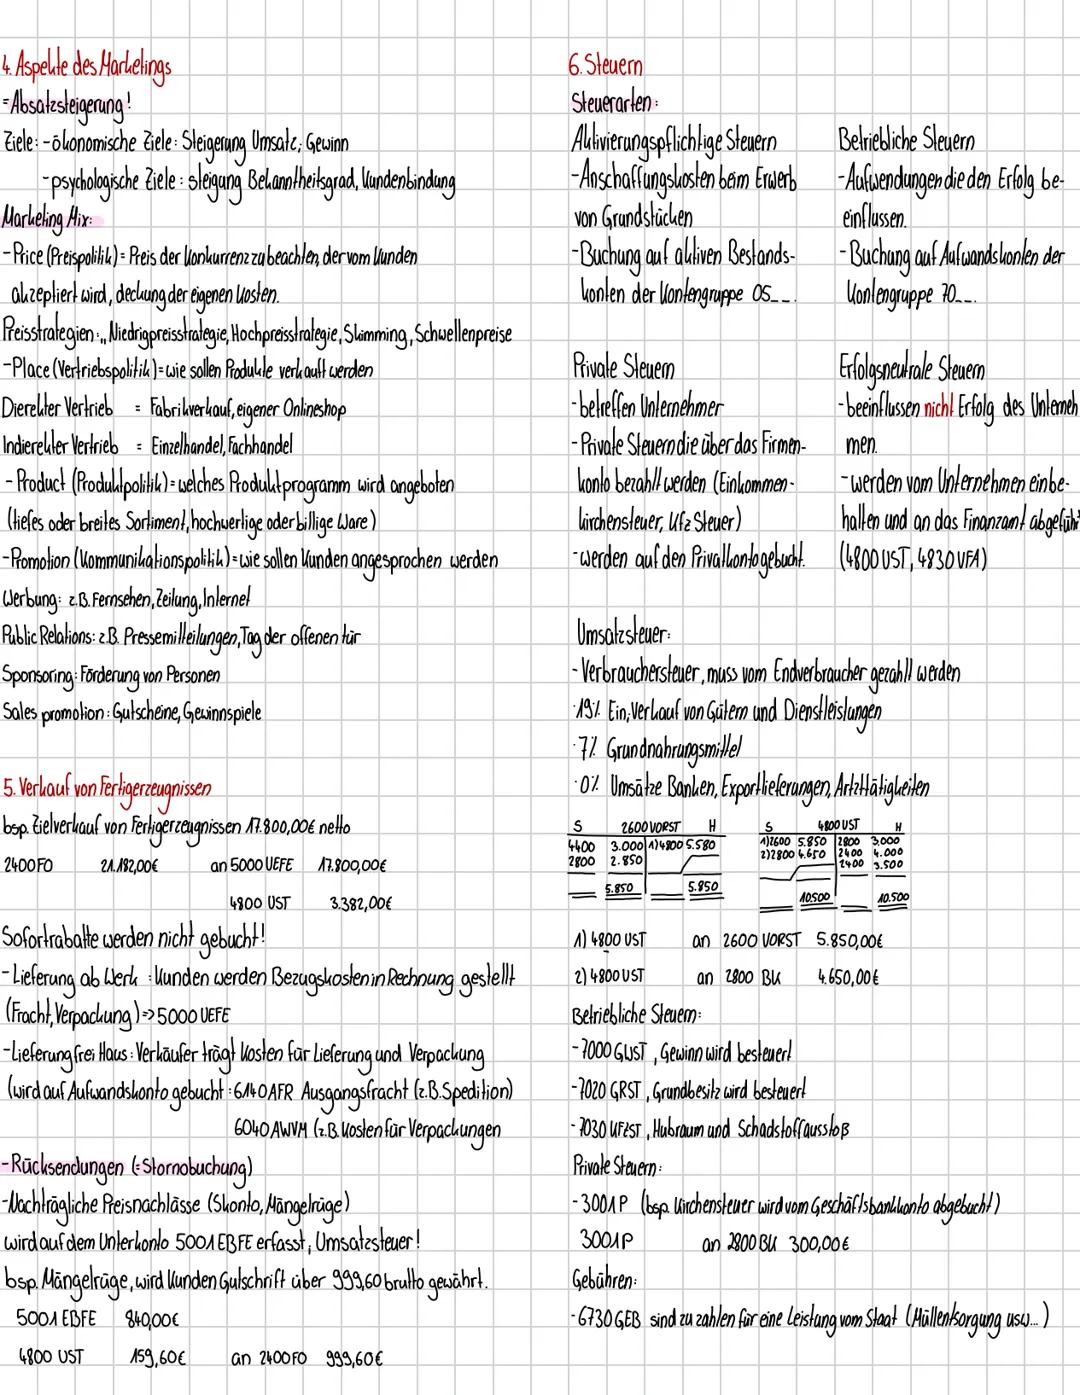 4. Aspekte des Marketings
=Absatzsteigerung!
Ziele: -ökonomische Ziele: Steigerung Umsatz, Gewinn
-psychologische Ziele: steigung Bekanntheitsgrad, Kundenbindung
Marketing Mix:
-Price (Preispolitik) = Preis der Konkurrenz zu beachten, der vom Kunden
akzeptiert wird, deckung der eigenen Kosten.
Preisstrategien:„ Niedrigpreisstrategie, Hochpreisstrategie, Skimming, Schwellenpreise
-Place (Vertriebspolitik) = wie sollen Produkte verkauft werden
Dierekter Vertrieb = Fabrikverkauf, eigener Onlineshop
Indierekter Vertrieb = Einzelhandel, Fachhandel
- Product (Produktpolitik) = welches Produktprogramm wird angeboten
(tiefes oder breites Sortiment, hochwertige oder billige Ware)
-Promotion (Kommunikationspolitik) = wie sollen Kunden angesprochen werden
Werbung: z.B. Fernsehen, Zeitung, Internet
Public Relations: z.B. Pressemitteilungen, Tag der offenen tür
Sponsoring: Förderung von Personen
Sales promotion: Gutscheine, Gewinnspiele
5. Verkauf von Fertigerzeugnissen
bsp. Zielverkauf von Fertigerzeugnissen 17.800,00€ netto
2400 FO 21.182,00€ an 5000 UEFE 17.800,00€
4800 UST 3.382,00€
Sofortrabatte werden nicht gebucht!
-Lieferung ab Werk: Kunden werden Bezugskosten in Rechnung gestellt
(Fracht, Verpackung) => 5000 UEFE
-Lieferung frei Haus: Verkäufer trägt Kosten für Lieferung und Verpackung
(wird auf Aufwandskonto gebucht: 6140 AFR Ausgangsfracht (z.B. Spedition)
6040 AWVM (z.B. Kosten für Verpackungen
-Rücksendungen (=Stornobuchung)
-Nachträgliche Preisnachlässe (Skonto, Mängelrüge)
wird auf dem Unterkonto 5001 EBFE erfasst, Umsatzsteuer!
bsp. Mängelrüge, wird Kunden Gutschrift über 999,60 brutto gewährt.
5001 EBFE 840,00€
4800 UST 159,60€ an 2400 FO 999,60€
6. Steuern
Steuerarten:
Aktivierungspflichtige Steuern
-Anschaffungskosten beim Erwerb
von Grundstücken
-Buchung auf aktiven Bestands-
konten der Kontengruppe 05__.
Betriebliche Steuern
-Aufwendungen die den Erfolg be-
einflussen.
-Buchung auf Aufwandskonten der
Kontengruppe 70__.
Private Steuern
-betreffen Unternehmer
-Private Steuern die über das Firmen-
konto bezahlt werden (Einkommen-
kirchensteuer, Kfz Steuer)
-werden auf den Privatkonto gebucht.
Erfolgsneutrale Steuern
-beeinflussen nicht Erfolg des Unterneh
men.
-werden vom Unternehmen einbe-
halten und an das Finanzamt abgeführt
(4800 UST, 4830 VFA)
Umsatzsteuer:
-Verbrauchersteuer, muss vom Endverbraucher gezahlt werden
·19% Ein, Verkauf von Gütern und Dienstleistungen
·7% Grundnahrungsmittel
·0% Umsätze Banken, Exportlieferungen, Artzttätigkeiten
S 2600 VORST H
4400 3.000 1) 4800 5.580
2800 2.850
5.850 5.850
S 4800 UST H
1) 2600 5.850 2800 3.000
2) 2800 4.650 2400 4.000
2400 3.500
10.500 10.500
1) 4800 UST an 2600 VORST 5.850,00€
2) 4800 UST an 2800 BK 4.650,00€
Betriebliche Steuern:
-7000 GWST, Gewinn wird besteuert
-7020 GRST, Grundbesitz wird besteuert
-7030 KFZST, Hubraum und Schadstoffausstoß
Private Steuern:
-3001 P (bsp. Kirchensteuer wird vom Geschäftsbankkonto abgebucht)
3001 P an 2800 BK 300,00€
Gebühren:
-6730 GEB sind zu zahlen für eine Leistung vom Staat (Müllentsorgung usw...)